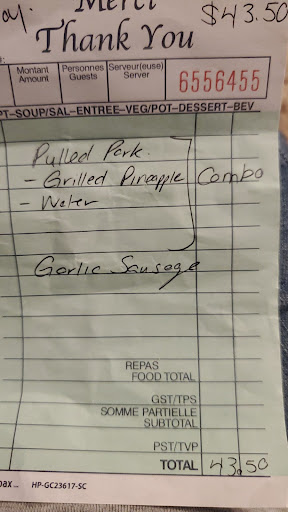 ay. Merci $43.50
Thank You
Montant
Amount
Personnes
Guests
Serveur(euse)
Server
6556455
PT-SOUP/SAL-ENTREE-VEG/POT-DESSERT-BEV
Pulled Pork.
- Grilled Pineapple Combo
- Water
Garlic Sausage
REPAS
FOOD TOTAL
GST/TPS
SOMME PARTIELLE
SUBTOTAL
PST/TVP
TOTAL 43.50
HP-GC23617-SC